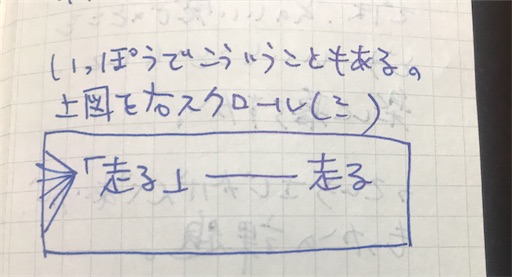 いっぽうでこういうこともある。
上図を右スクロール(ミ)
「走る」―― 走る